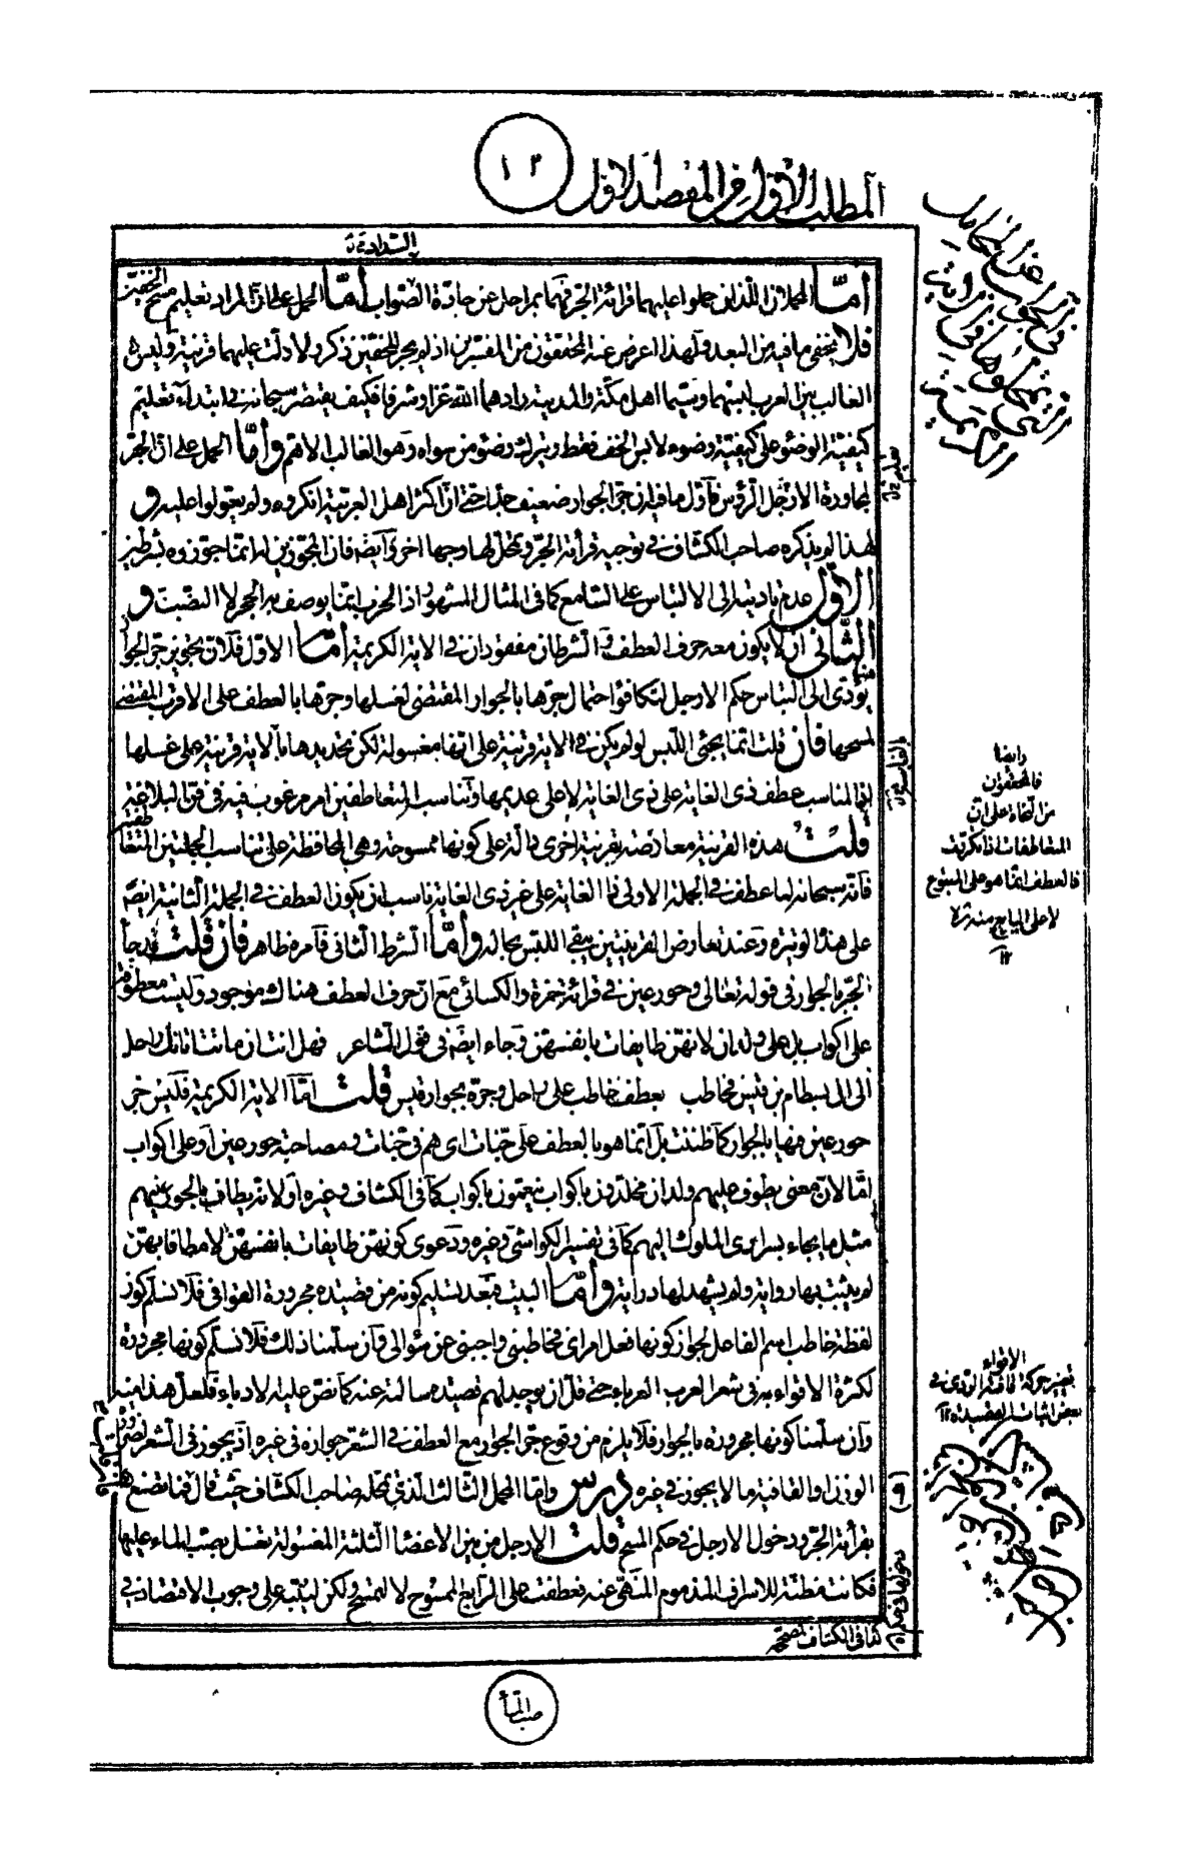 المطلب الاول فى المقصد الاول
١٢
السداد نخ
أمّا المحملان اللذان حملوا عليهما قرائة الجر فهما بمراحل عن جادة الصواب أمّا الحمل على ان المراد تعليم مسح الخفين
فلا يخفى ما فيه من البعد ولهذا اعرض عنه المحققون من المفسرين اذ لم يجر للخفين ذكر ولا دلت عليهما قرينة وليس
الغالب بين العرب لبسهما وسيما اهل مكة والمدينة زادهما الله عزا وشرفا فكيف يقتصر سبحانه فى ابتداء تعليم
كيفية الوضوء على كيفية وضوء لابس الخف فقط ويترك وضوء من سواه وهو الغالب الاهم وأمّا الحمل على ان الجر
لمجاورة الارجل الرؤس فاول ما فيه ان جر الجوار ضعيف جدا حتى ان اكثر اهل العربية انكروه ولم يعولوا عليه و
لهذا لم يذكره صاحب الكشاف فى توجيه قرائة الجر وتمحل لها وجها اخر وايضا فان المجوزين له انما جوزوه بشرطين
الاول عدم تاديته الى الالتباس على السامع كما فى المثال المشهور اذ الخرب انما يوصف به الجحر لا الضب و
الثانى ان لا يكون معه حرف العطف والشرطان مفقودان فى الاية الكريمة أمّا الاول فلان تجويز جر الجوار هنا
يؤدى الى التباس حكم الارجل لتكافؤ احتمال جرها بالجوار المقتضى لغسلها وجرها بالعطف على الاقرب المقتضى
لمسحها فان قلت انما يجئ اللبس لو لم يكن فى الاية قرينة على انها مغسولة لكن تحديدها بالاية قرينة على غسلها
اذ المناسب عطف ذى الغاية على ذى الغاية لا على عديمها وتناسب المتعاطفين امر مرغوب فيه فى فن البلاغة
قلت هذه القرينة معارضة بقرينة اخرى دالة على كونها ممسوحة وهى المحافظة على تناسب الجملتين المتعاطفتين
فانه سبحانه لما عطف فى الجملة الاولى ذا الغاية على غير ذى الغاية ناسب ان يكون العطف فى الجملة الثانية ايضا
على هذه الوتيرة وعند تعارض القرينتين يبقى اللبس بحاله وأمّا الشرط الثانى فامره ظاهر فان قلت قد جاء
الجر بالجوار فى قوله تعالى وحور عين فى قرائة حمزة والكسائى مع ان حرف العطف هناك موجود وليست معطوفة
على اكواب بل على ولدان لانهن طايفات بانفسهن وجاء ايضا فى قول الشاعر فهل انت ان ماتت اتانك راحل
الى ال بسطام بن قيس فخاطب بعطف خاطب على راحل وجره بجوار قيس قلت امّا الاية الكريمة فليس جر
حور عين فيها بالجوار كما ظننت بل انما هو بالعطف على جنات اى هم فى جنات ومصاحبة حور عين او على اكواب
امّا لان معنى يطوف عليهم ولدان مخلدون باكواب ينعمون باكواب كما فى الكشاف وغيره او لانه يطاف بالحور عليهم
مثل ما يجاء بسرارى الملوك اليهم كما فى تفسير الكواشى وغيره ودعوى كونهن طايفات بانفسهن لا مطافا بهن
لم يثبت بها رواية ولم يشهد لها دراية وأمّا البيت فبعد تسليم كونه من قصيدة مجرورة القوافى فلا نسلم كون
لفظة خاطب اسم الفاعل لجواز كونها فعل امر اى فخاطبنى واجبنى عن سؤالى وان سلمنا ذلك فلا نسلم كونها مجرورة
لكثرة الاقواء به فى شعر العرب العرباء حتى قل ان يوجد لهم قصيدة سالمة عنه كما نص عليه الادباء فلعل هذا منه
وان سلمنا كونها مجرورة بالجوار فلا يلزم من وقوع جر الجوار مع العطف فى الشعر جوازه فى غيره اذ يجوز فى الشعر لضرورة
الوزن والقافية ما لا يجوز فى غيره درس وامّا المحمل الثالث الذى تمحله صاحب الكشاف حيث قال فما تصنع
بقرأية الجر ودخول الارجل فى حكم المسح قلت الارجل من بين الاعضا الثلثة المغسولة تغسل بصب الماء عليها
فكانت مظنة للاسراف المذموم المنهى عنه فعطفت على الرابع الممسوح لا لتمسح ولكن لينبه على وجوب الاقتصاد فى
كذا فى الكشاف مصححه
صب الماء
وايضا
فالمحققون
من النحاة على ان
المتعاطفات اذا تكررت
فالعطف انما هو على المتبوع
لا على التابع منه ره
١٢
الاقواء
تغيير حركة قافية الروى فى
بعض ابيات القصيدة ١٢